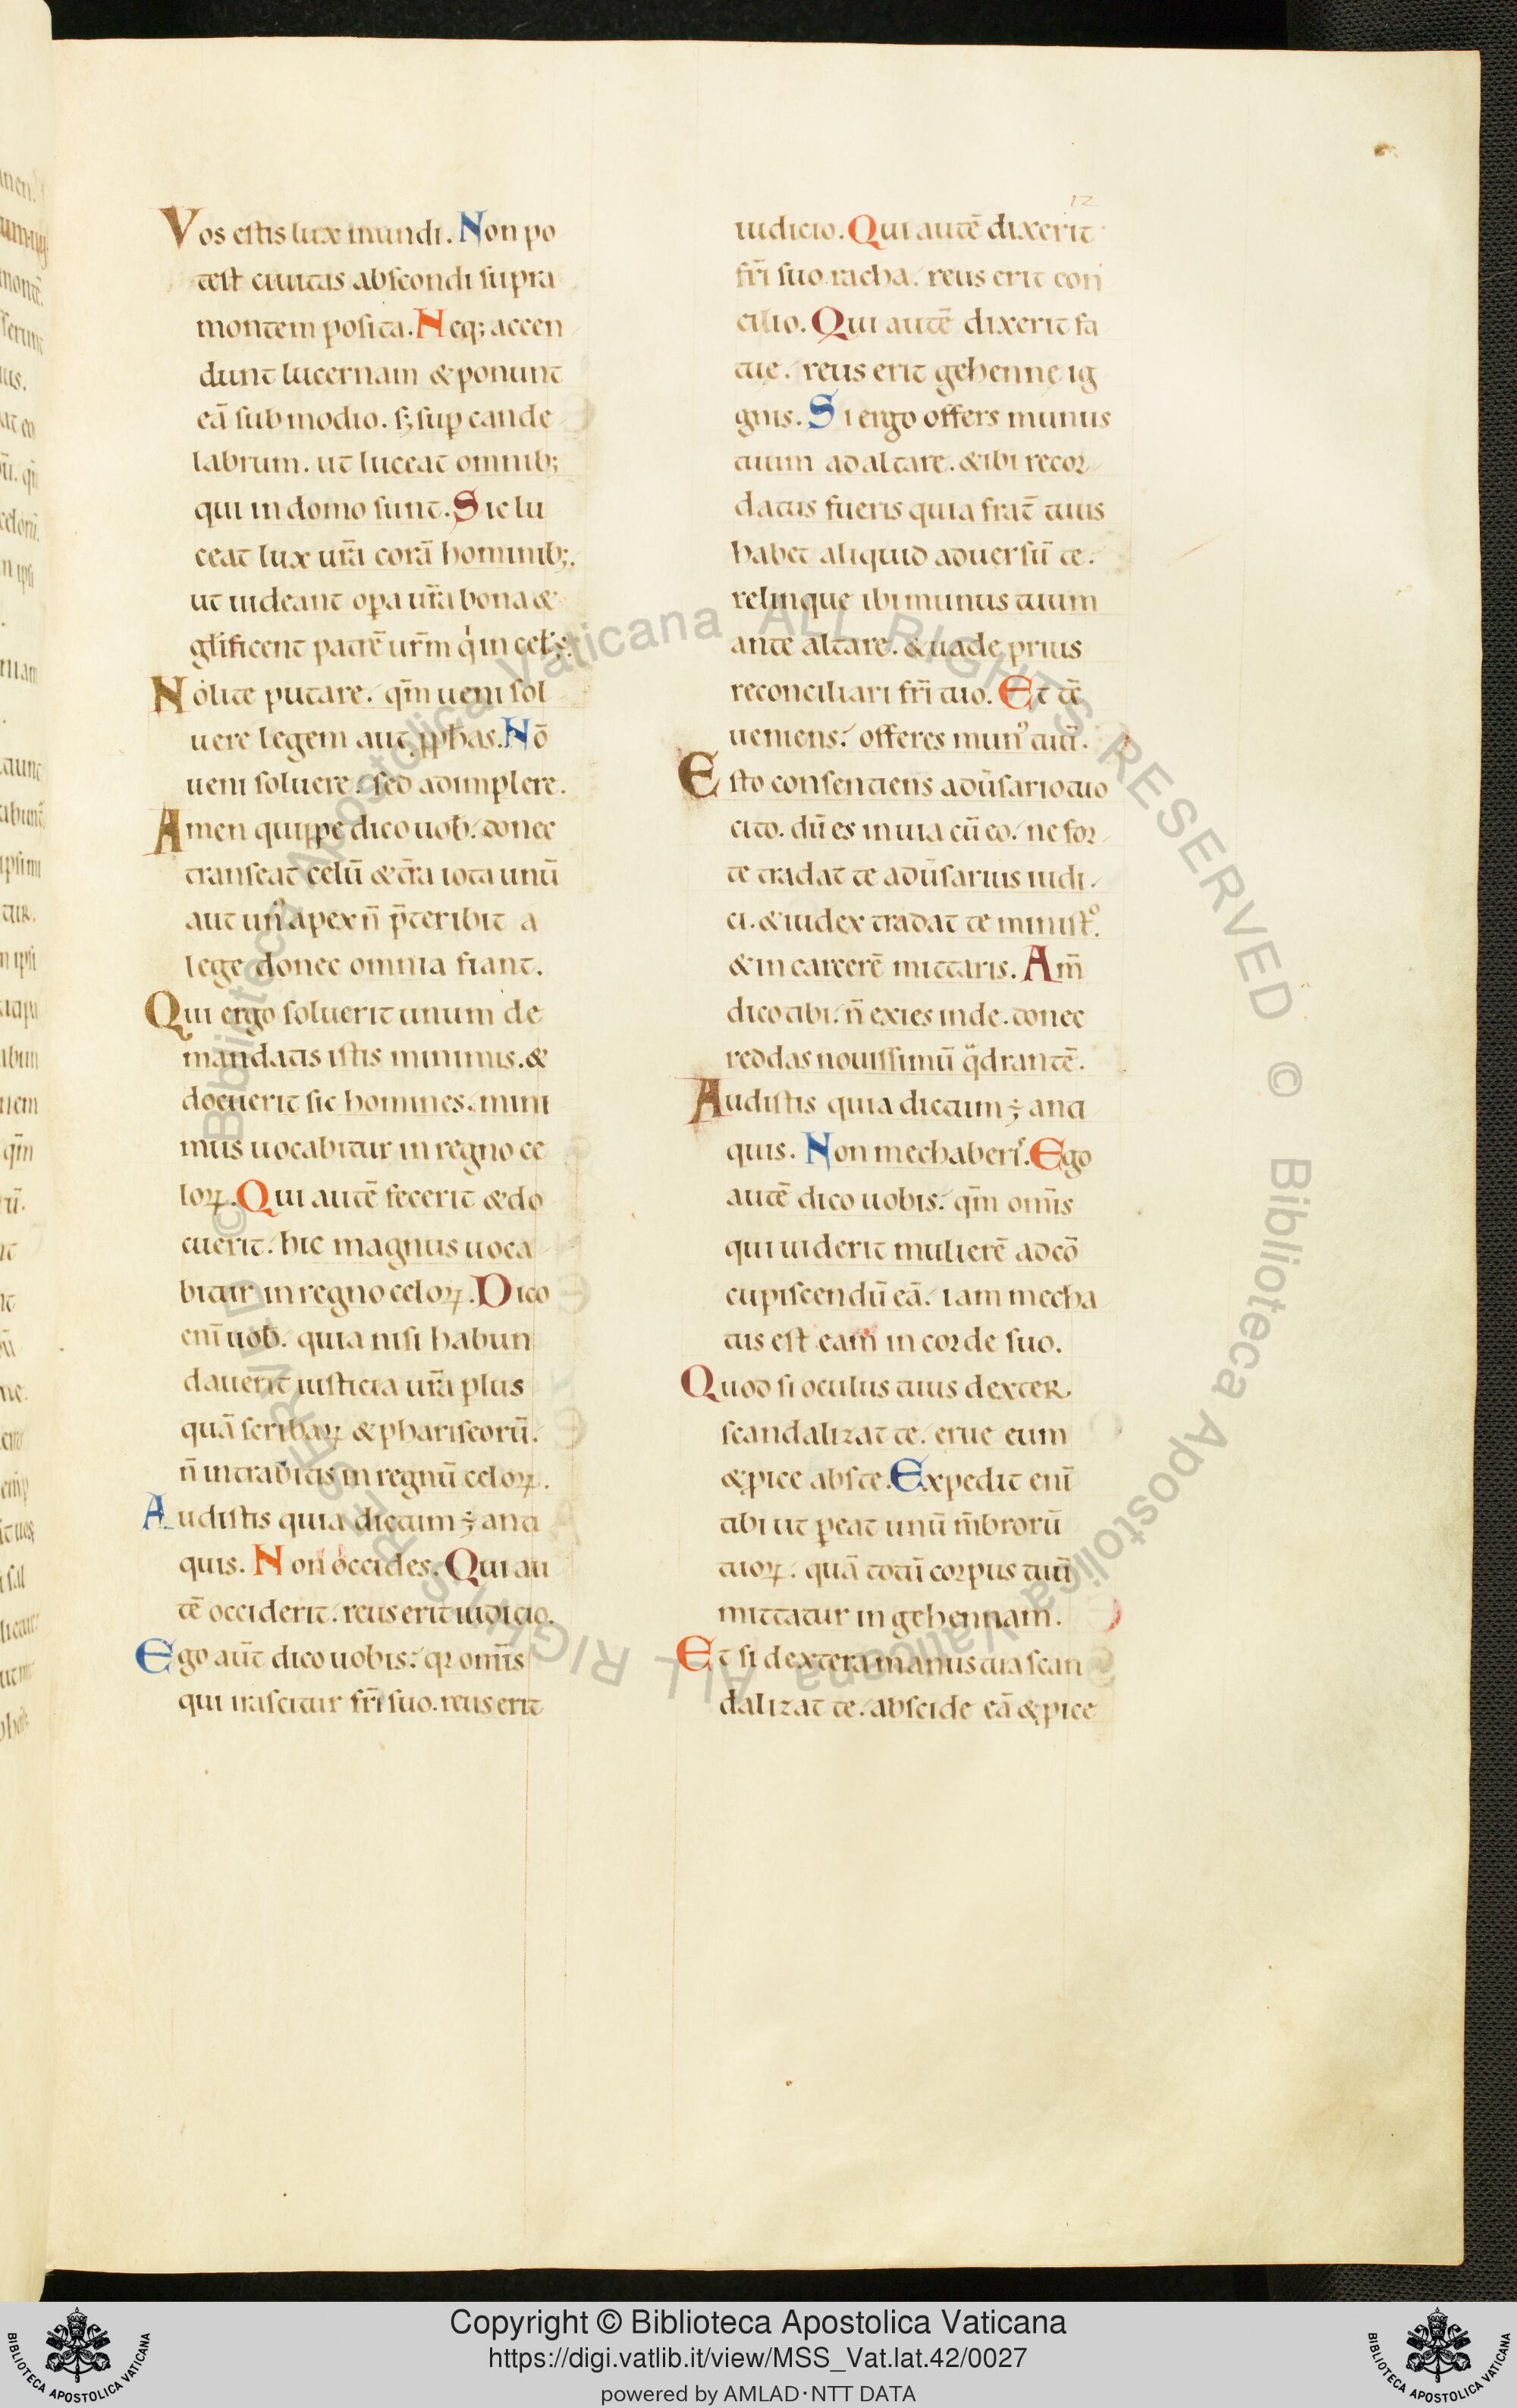 12
Vos estis lux mundi. Non po
test ciuitas abscondi supra
montem posita. Neq; accen
dunt lucernam & ponunt
eā sub modio. s; sup̱ cande
labrum. ut luceat omnib;
qui in domo sunt. Sic lu
ceat lux ur̄a corā hominib;.
ut uideant op̱a ur̄a bona &
gl̄ificent patrē ur̄m q'in cel'ę.
Nolite putare. qm̄ ueni sol
uere legem aut ꝓph̄as. Nō
ueni soluere. sed adimplere.
Amen quippe dico uob̄. donec
transeat celū & tr̄a iota unū
aut un' apex n̄ p̄teribit a
lege donec omnia fiant.
Qui ergo soluerit unum de
mandatis istis minimis. &
docuerit sic homines. mini
mus uocabitur in regno ce
loꝝ. Qui autē fecerit & do
cuerit. hic magnus uoca
bitur in regno celoꝝ. Dico
enī uob̄. quia nisi habun
dauerit iusticia ur̄a plus
quā scribaꝝ & phariseorū.
n̄ intrabitis in regnū celoꝝ.
Audistis quia dictum ÷ anti
quis. Non occides. Qui au
tē occiderit. reus erit iudicio.
Ego aut̄ dico uobis. qꝛ omīs
qui irascitur fr̄i suo. reus erit
iudicio. Qui autē dixerit
fr̄i suo racha. reus erit con
cilio. Qui autē dixerit fa
tue. reus erit gehennę ig
gnis. Si ergo offers munus
tuum ad altare. & ibi recor
datus fueris quia frat̄ tuus
habet aliquid aduersū te.
relinque ibi munus tuum
ante altare. & uade prius
reconciliari fr̄i tuo. Et tē
ueniens. offeres mun' tuū.
Esto consentiens adūsario tuo
cito. dū es in uia cū eo. ne for
te tradat te adūsarius iudi
ci. & iudex tradat te minist°.
& in carcerē mittaris. Am̄
dico tibi. n̄ exies inde. donec
reddas nouissimū qͣdrantē.
Audistis quia dictum ÷ anti
quis. Non mechaberis. Ego
autē dico uobis. qm̄ omīs
qui uiderit mulierē ad cō
cupiscendū eā. iam mecha
tus est eam in corde suo.
Quod si oculus tuus dexter
scandalizat te. erue eum
& ꝓice abs te. Expedit enī
tibi ut p̱eat unū m̄brorū
tuoꝝ. quā totū corpus tuū
mittatur in gehennam.
Et si dextera manus tua scan
dalizat te. abscide eā & ꝓice
© Biblioteca Apostolica Vaticana ALL RIGHTS RESERVED © Biblioteca Apostolica Vaticana ALL RIGHTS RESERVED
Copyright © Biblioteca Apostolica Vaticana
https://digi.vatlib.it/view/MSS_Vat.lat.42/0027
powered by AMLAD·NTT DATA
BIBLIOTECA APOSTOLICA VATICANA
BIBLIOTECA APOSTOLICA VATICANA